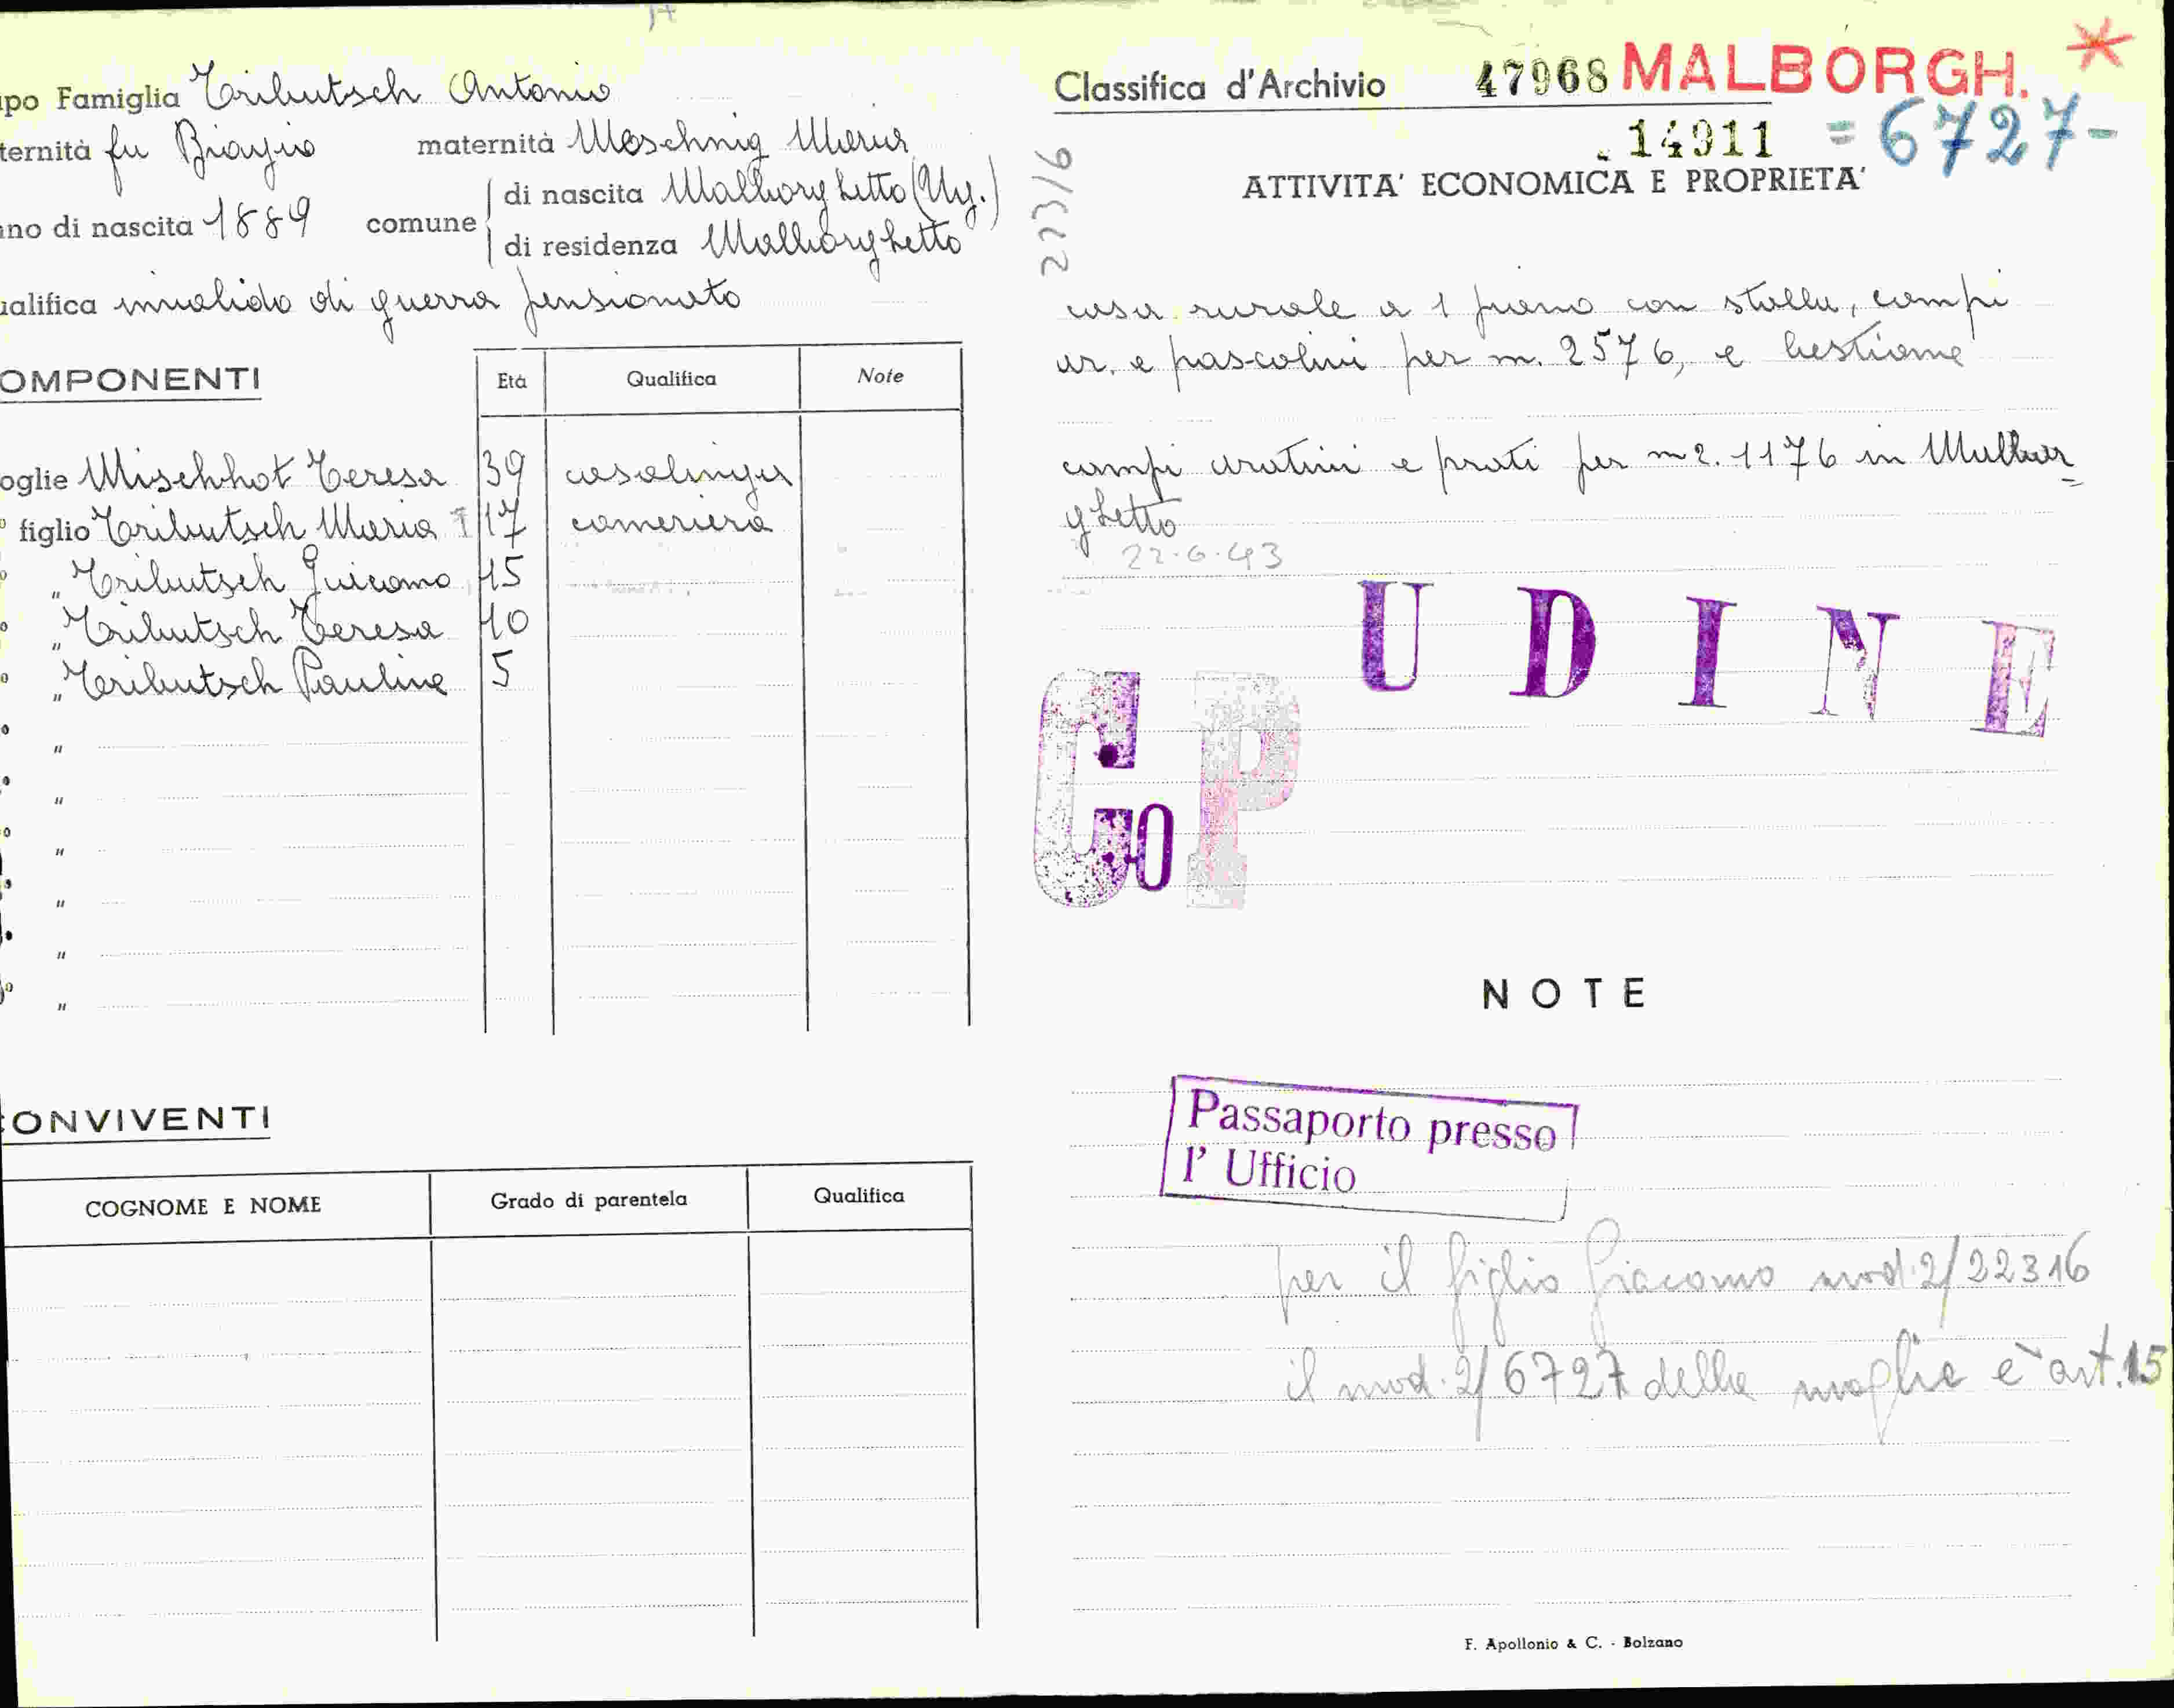 po Famiglia Tributsch Antonio
ternità fu Biagio maternità Moschnig Maria
no di nascita 1889 comune di nascita Malborghetto (Ug.)
di residenza Malborghetto
alifica invalido di guerra pensionato
OMPONENTI
Età Qualifica Note
oglie Mischkot Teresa 39 casalinga
figlio Tributsch Maria 17 cameriera
" Tributsch Guicomo 15
" Tributsch Teresa 10
" Tributsch Pauline 5
"
"
"
"
"
"
ONVIVENTI
COGNOME E NOME Grado di parentela Qualifica
Classifica d'Archivio 47968 MALBORGH.
14911 = 6727-
273/6
ATTIVITA' ECONOMICA E PROPRIETA'
casa rurale a 1 piano con stalla, campi
ar. e pascolini per m. 2576, e bestiame
campi aratini e prati per m2. 1176 in Malbor=
ghetto
22.6.43
UDINE
GO P
NOTE
Passaporto presso
l' Ufficio
per il figlio Giacomo mod. 2/22316
il mod. 2/6727 della moglie è art. 15
F. Apollonio & C. - Bolzano